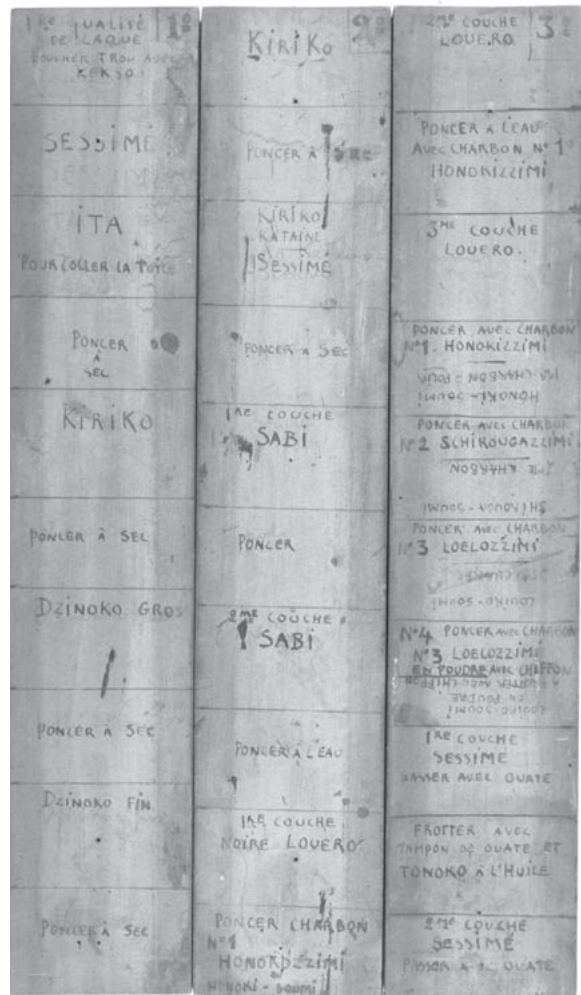 1º
1RE QUALITÉ
DE LAQUE
BOUCHER TROU AVEC
KEKSO
SESSIMÉ
SESSIMÉ
ITA
POUR COLLER LA TOILE
PONCER
À
SEC
KIRIKO
PONCER À SEC
DZINOKO GROS
PONCER À SEC
DZINOKO FIN
PONCER À SEC
2º
KIRIKO
PONCER À SEC
KIRIKO
KATAINE
SESSIMÉ
PONCER À SEC
1RE COUCHE
SABI
PONCER
2ME COUCHE
SABI
PONCER À L'EAU
1RE COUCHE
NOIRE LOUERO
PONCER CHARBON
Nº1
HONOKDZÉZIMI
HONOKI-SOUMI
3º
2ME COUCHE
LOUERO
PONCER À L'EAU
AVEC CHARBON Nº1
HONOKIZZIMI
3ME COUCHE
LOUERO.
PONCER AVEC CHARBON
Nº1. HONOKIZZIMI
1ER CHARBON - POUR
HONOKI-SOUMI
PONCER AVEC CHARBON
Nº2 SCHIROUGAZZIMI
2ME CHARBON
SHIROUGA-SOUMI
PONCER AVEC CHARBON
Nº3 LOELOZZIMI
LOUIRO-SOUMI
Nº4 PONCER AVEC CHARBON
Nº3 LOELOZZIMI
EN POUDRE AVEC CHIFFON
AVEC CHIFFON
EN POUDRE
LOUIRO-SOUMI
1RE COUCHE
SESSIMÉ
PASSER AVEC OUATE
FROTTER AVEC
TAMPON DE OUATE ET
TONOKO À L'HUILE
2ME COUCHE
SESSIMÉ
OUATE